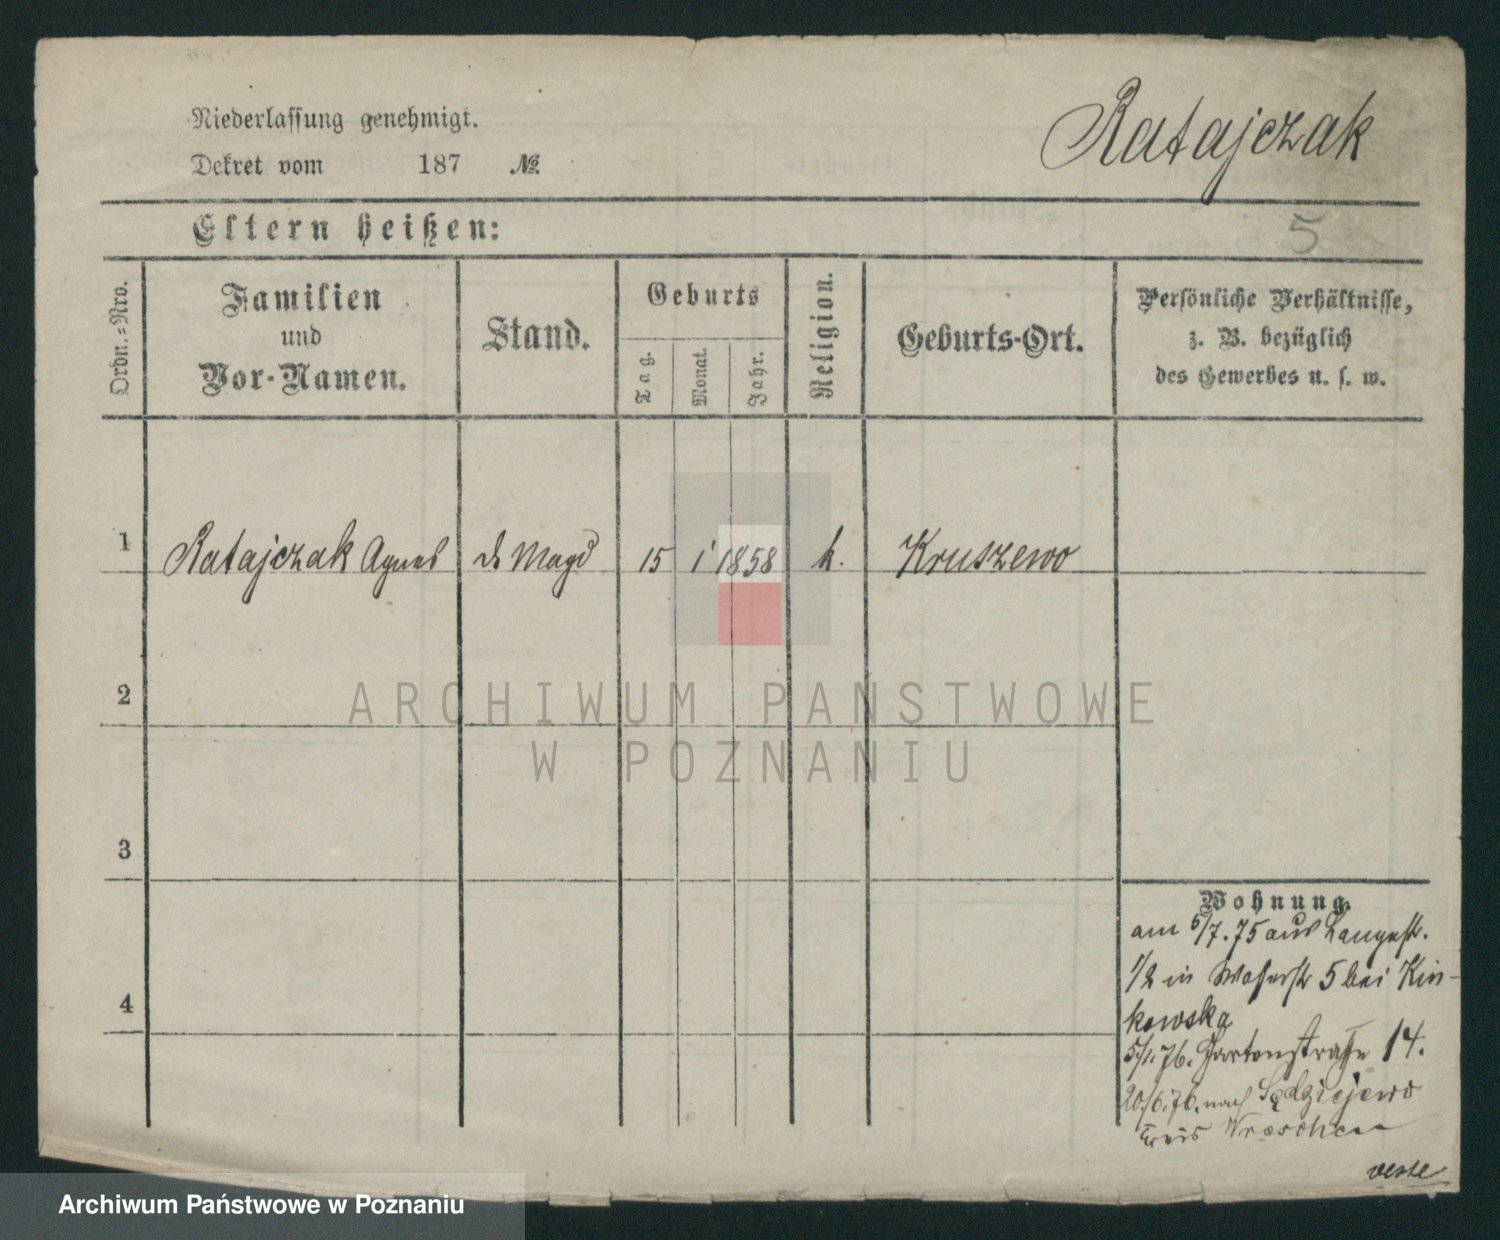 Niederlassung genehmigt.
Ratajczak
Dekret vom 187 №
Eltern heißen:
5
Ordn.=Nro.
Familien
und
Vor-Namen.
Stand.
Geburts
Tag.
Monat.
Jahr.
Religion.
Geburts-Ort.
Persönliche Verhältnisse,
z. B. bezüglich
des Gewerbes u. s. w.
1 Ratajczak Agnes d Magd 15 1 1858 k. Kruszewo
2
ARCHIWUM PAŃSTWOWE
W POZNANIU
3
Wohnung.
am 5/7.75 aus Langestr.
1/2 in Wasserstr 5 bei Kin-
kowska
4
5/1.76. Gartenstraße 14.
20/6.76. nach Sędziejewo
Kreis Wreschen
verte
Archiwum Państwowe w Poznaniu